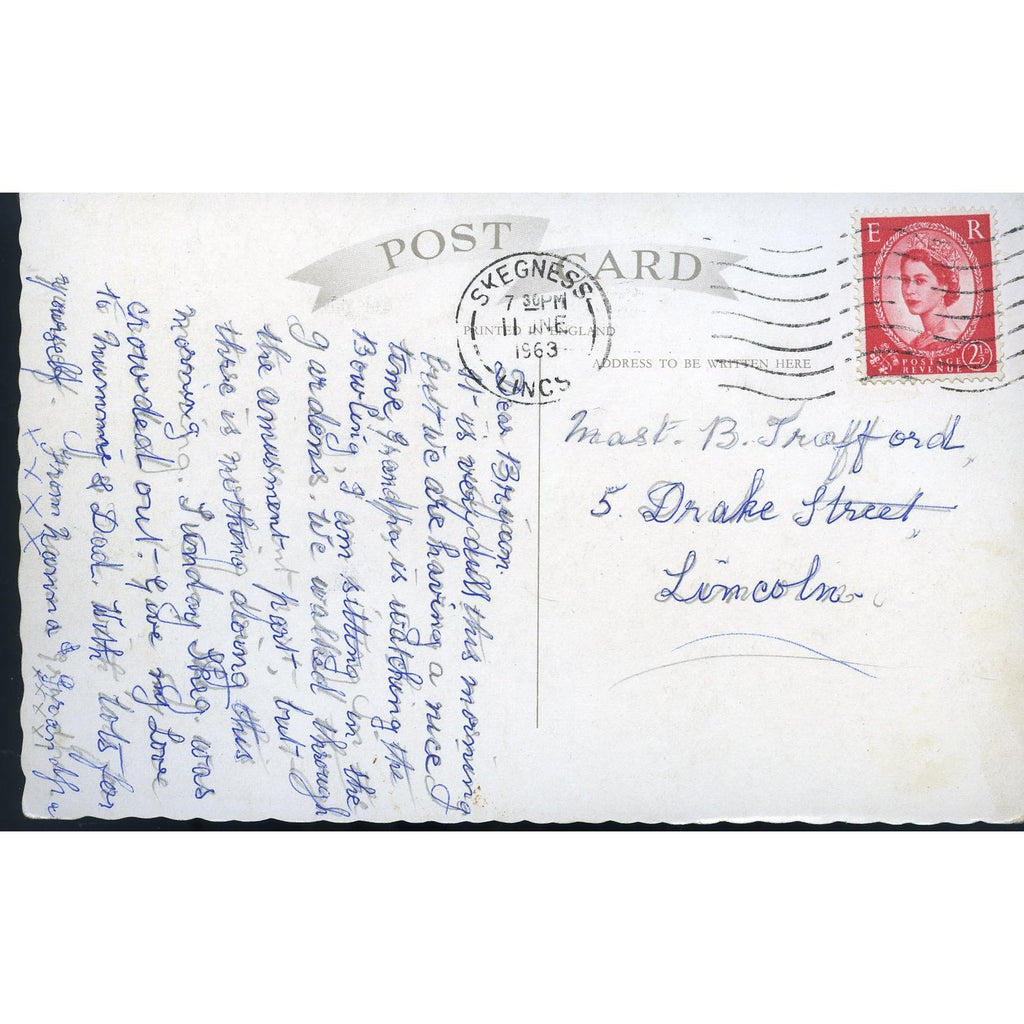 POST CARD
PRINTED IN ENGLAND
ADDRESS TO BE WRITTEN HERE
SKEGNESS
7 30PM
11 JNE
1963
LINCS
E R
POSTAGE
REVENUE
2½
Mast. B. Trafford
5. Drake Street
Lincoln.
Dear Bryan.
It is very dull this morning
but we are having a nice
time, Grandpa is watching the
Bowling, I am sitting in the
gardens. We walked through
the amusement part, but
there is nothing doing this
morning. Sunday Skeg. was
crowded out. Give my Love
to Mummie & Dad. With lots for
yourself. From Nanna & Grandpa
x x x x
x x x x